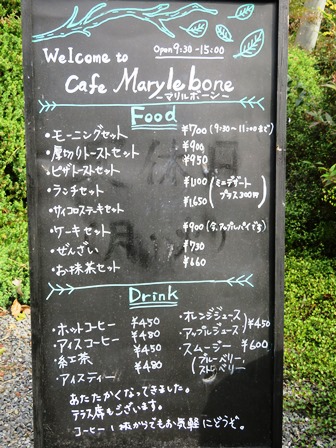 Welcome to Open 9:30-15:00
Cafe Marylebone
ーマリルボーンー
Food
・モーニングセット ¥700 (9:30~11:00まで)
・厚切りトーストセット ¥900
・ピザトーストセット ¥950
・ランチセット ¥1100 (ミニデザート
・サイコロステーキセット ¥1650 プラス300円)
・ケーキセット ¥900 (今、アップルパイです)
・ぜんざい ¥730
・お抹茶セット ¥660
Drink
・ホットコーヒー ¥450
・アイスコーヒー ¥480
・紅茶 ¥450
・アイスティー ¥480
・オレンジジュース
・アップルジュース ) ¥450
・スムージー ¥600
(ブルーベリー、
ストロベリー)
あたたかくなってきました。
テラス席もございます。
コーヒー1杯からでもお気軽にどうぞ。